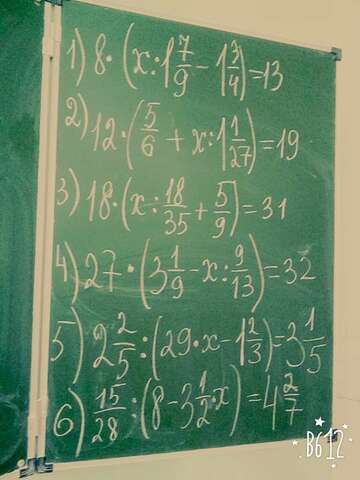 1) 8·(x:1 7/9 − 1 3/4)=13
2) 12·(5/6 + x:1 1/27)=19
3) 18·(x:18/35 + 5/9)=31
4) 27·(3 1/9 − x:9/13)=32
5) 2 2/5:(29·x−1 2/3)=3 1/5
6) 15/28:(8−3 1/2·x)=4 2/7
B612